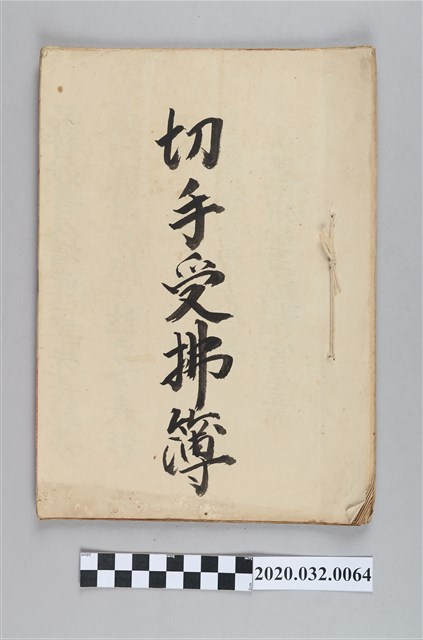 切手受拂簿
2020.032.0064